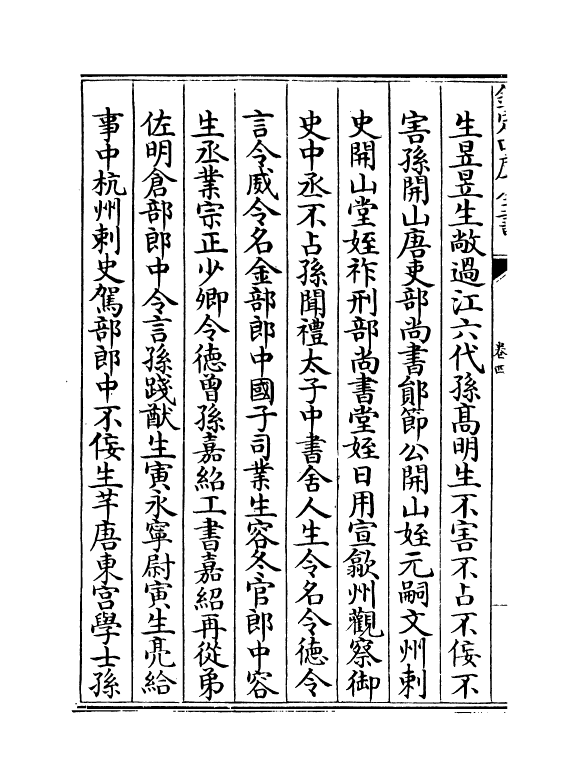 欽定四庫全書
卷四
生昱昱生敞過江六代孫髙明生不害不占不佞不
害孫開山唐吏部尚書鄖節公開山姪元嗣文州刺
史開山堂姪祚刑部尚書堂姪日用宣歙州觀察御
史中丞不占孫聞禮太子中書舍人生令名令徳令
言令威令名金部郎中國子司業生容冬官郎中容
生丞業宗正少卿令徳曾孫嘉紹工書嘉紹再從弟
佐明倉部郎中令言孫踐猷生寅永寧尉寅生亮給
事中杭州刺史駕部郎中不佞生芊唐東宫學士孫